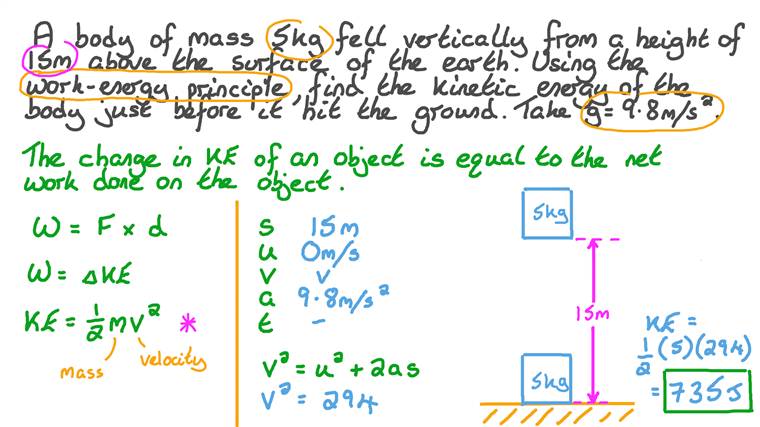 A body of mass 5kg fell vertically from a height of
15m above the surface of the earth. Using the
work-energy principle, find the kinetic energy of the
body just before it hit the ground. Take g = 9.8m/s².
The change in KE of an object is equal to the net
work done on the object.
W = F × d
W = ΔKE
KE = 1/2 mv² *
mass velocity
s 15m
u 0m/s
v v
a 9.8m/s²
t –
v² = u² + 2as
v² = 294
5kg
15m
5kg
KE =
1/2 (5)(294)
= 735J